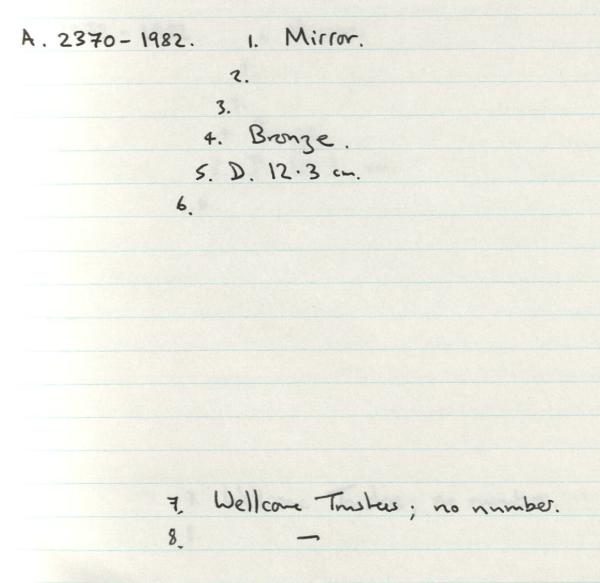 A. 2370-1982. 1. Mirror.
2.
3.
4. Bronze.
5. D. 12.3 cm.
6.
7. Wellcome Trustees; no number.
8. —